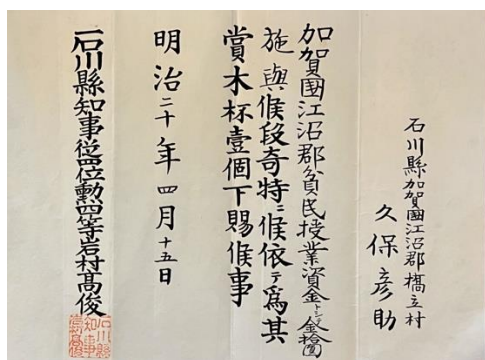 石川縣加賀國江沼郡橋立村
久保彦助
加賀國江沼郡貧民授業資金トシテ金拾圓
施與候段奇特ニ候依テ爲其
賞木杯壹個下賜候事
明治二十年四月十五日
石川縣知事從四位勲四等岩村高俊
石川縣
知事